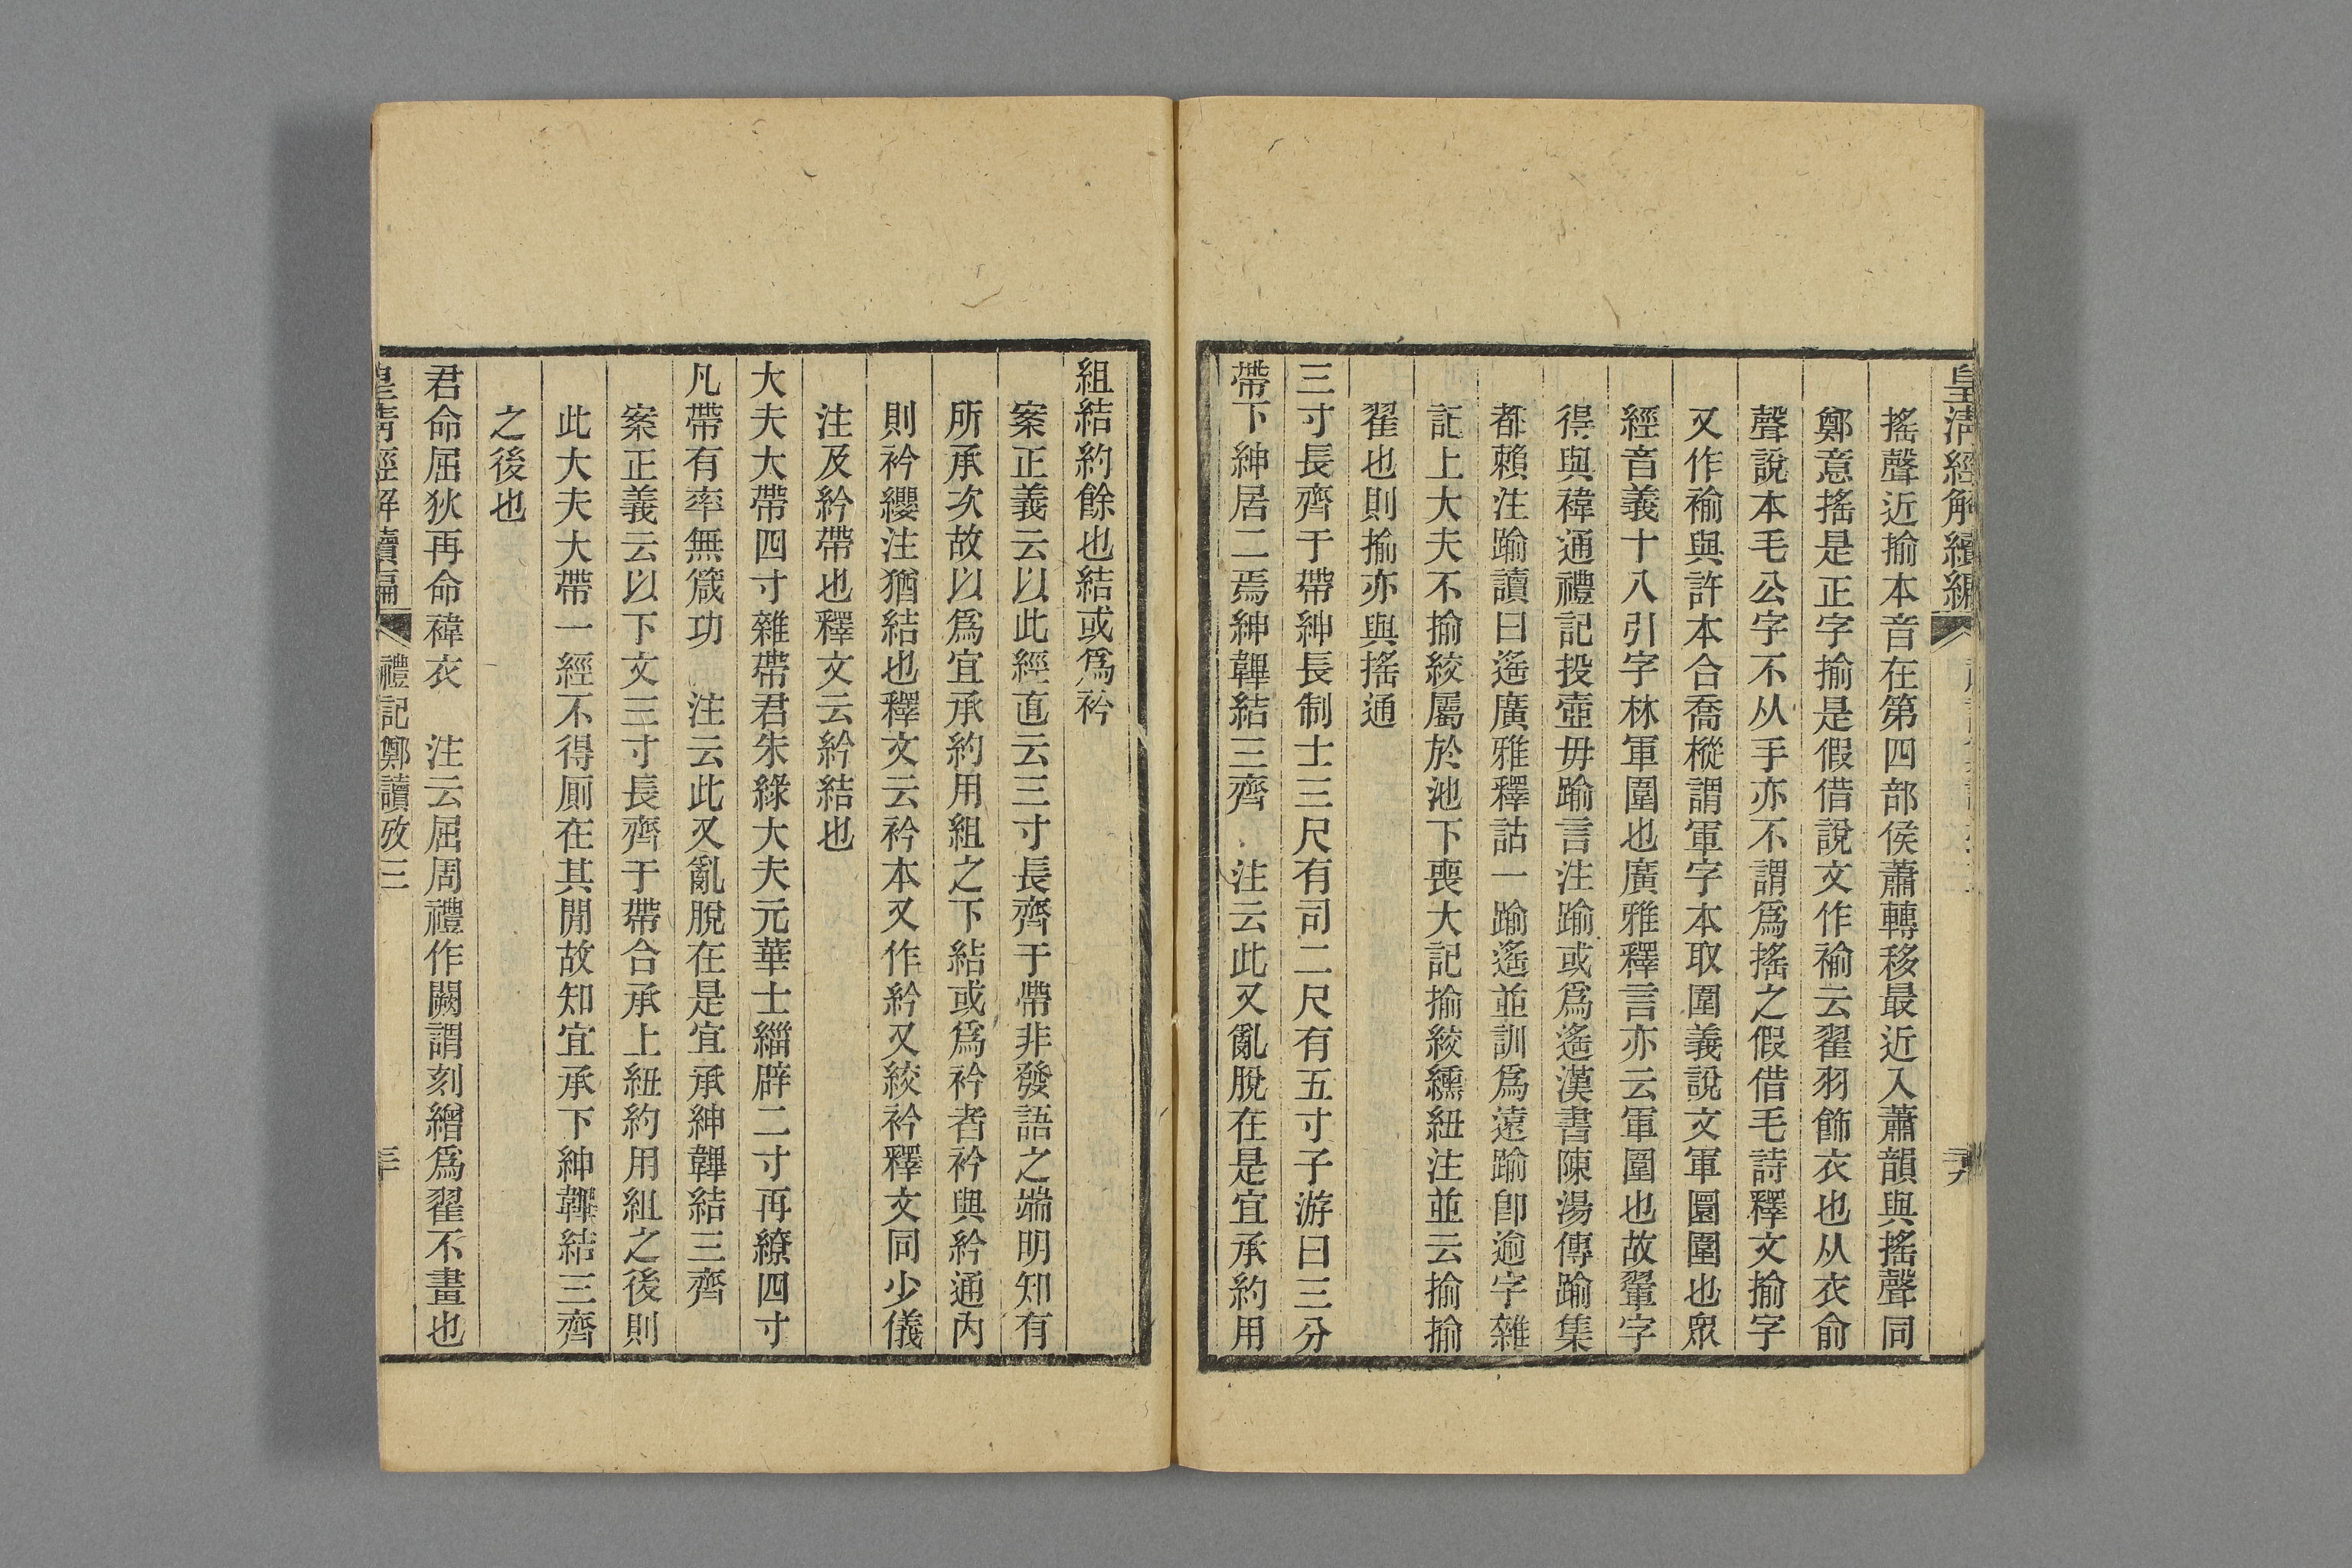 皇清經解續編
搖聲近揄本音在第四部侯蕭轉移最近入蕭韻與搖聲同
鄭意搖是正字揄是假借說文作褕云翟羽飾衣也从衣俞
聲說本毛公字不从手亦不謂爲搖之假借毛詩釋文揄字
又作褕與許本合喬樅謂軍字本取圍義說文軍圜圍也眾
經音義十八引字林軍圍也廣雅釋言亦云軍圍也故翬字
得與褘通禮記投壺毋踰言注踰或爲遙漢書陳湯傳踰集
都賴注踰讀曰遙廣雅釋詁一踰遙並訓爲遠踰卽逾字雜
記上大夫不揄絞屬於池下喪大記揄絞纁紐注並云揄揄
翟也則揄亦與搖通
三寸長齊于帶紳長制士三尺有司二尺有五寸子游曰三分
帶下紳居二焉紳韠結三齊 注云此又亂脫在是宜承約用
組結約餘也結或爲衿
案正義云以此經直云三寸長齊于帶非發語之端明知有
所承次故以爲宜承約用組之下結或爲衿者衿與紟通內
則衿纓注猶結也釋文云衿本又作紟又絞衿釋文同少儀
注及紟帶也釋文云紟結也
大夫大帶四寸雜帶君朱綠大夫元華士緇辟二寸再繚四寸
凡帶有率無箴功 注云此又亂脫在是宜承紳韠結三齊
案正義云以下文三寸長齊于帶合承上紐約用組之後則
此大夫大帶一經不得厠在其閒故知宜承下紳韠結三齊
之後也
君命屈狄再命褘衣 注云屈周禮作闕謂刻繒爲翟不畫也
皇清經解續編 禮記鄭讀攷三